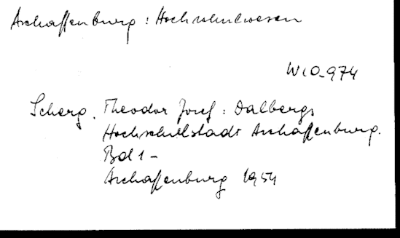 Aschaffenburg : Hochschulwesen
W10_974
Scherg, Theodor Josef : Dalbergs
Hochschulstadt Aschaffenburg.
Bd 1 –
Aschaffenburg 1954